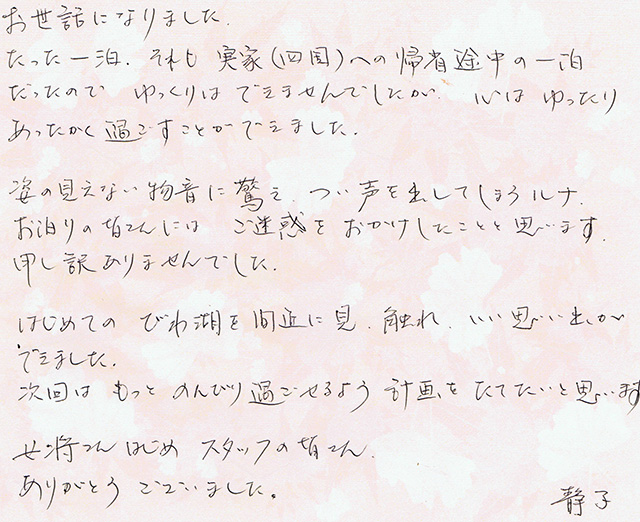 お世話になりました.
たった一泊. それも 実家(四国)への帰省途中の一泊
だったので ゆっくりは できませんでしたが. 心は ゆったり
あったかく 過ごすことができました.
姿の見えない物音に驚え. つい声を出してしまうルナ.
お泊りの皆さんには ご迷惑を おかけしたことと思います.
申し訳ありませんでした.
はじめての びわ湖を 間近に見. 触れ. いい思い出が
できました.
次回は もっと のんびり過ごせるよう 計画をたてたいと思います
女将さんはじめ スタッフの皆さん.
ありがとう ございました。
静子